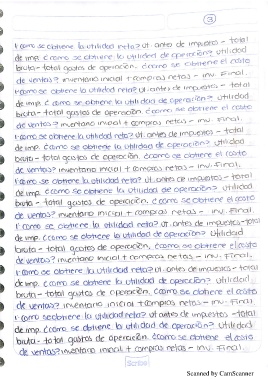 3
¿como se obtiene la utilidad neta? ut. antes de impuestos - total
de imp. ¿como se obtiene la utilidad de operación? utilidad
bruta - total gastos de operación. ¿como se obtiene el costo
de ventas? inventario inicial + compras netas - inv. Final.
¿como se obtiene la utilidad neta? ut. antes de impuestos - total
de imp. ¿como se obtiene la utilidad de operación? utilidad
bruta - total gastos de operación. ¿como se obtiene el costo
de ventas? inventario inicial + compras netas - inv. Final.
¿como se obtiene la utilidad neta? ut. antes de impuestos - total
de imp. ¿como se obtiene la utilidad de operación? utilidad
bruta - total gastos de operación. ¿como se obtiene el costo
de ventas? inventario inicial + compras netas - inv. Final.
¿como se obtiene la utilidad neta? ut. antes de impuestos - total
de imp. ¿como se obtiene la utilidad de operación? utilidad
bruta - total gastos de operación. ¿como se obtiene el costo
de ventas? inventario inicial + compras netas - inv. Final.
¿como se obtiene la utilidad neta? ut. antes de impuestos - total
de imp. ¿como se obtiene la utilidad de operación? utilidad
bruta - total gastos de operación. ¿como se obtiene el costo
de ventas? inventario inicial + compras netas - inv. Final.
¿como se obtiene la utilidad neta? ut. antes de impuestos - total
de imp. ¿como se obtiene la utilidad de operación? utilidad
bruta - total gastos de operación. ¿como se obtiene el costo
de ventas? inventario inicial + compras netas - inv. Final.
¿como se obtiene la utilidad neta? ut. antes de impuestos - total
de imp. ¿como se obtiene la utilidad de operación? utilidad
bruta - total gastos de operación. ¿como se obtiene el costo
de ventas? inventario inicial + compras netas - inv. Final.
Scribe
Scanned by CamScanner